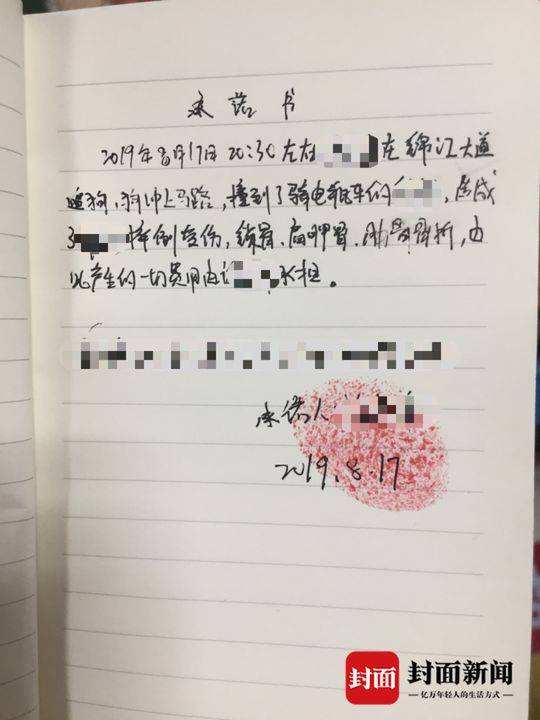 承诺书
2019年8月17日 20:30左右在锦江大道
遛狗,狗冲上马路,撞到了骑电瓶车的,造成
了摔倒受伤,锁骨、肩胛骨、肋骨骨折,由
此产生的一切费用由承担。
承诺人
2019.8.17
封面 封面新闻
亿万年轻人的生活方式